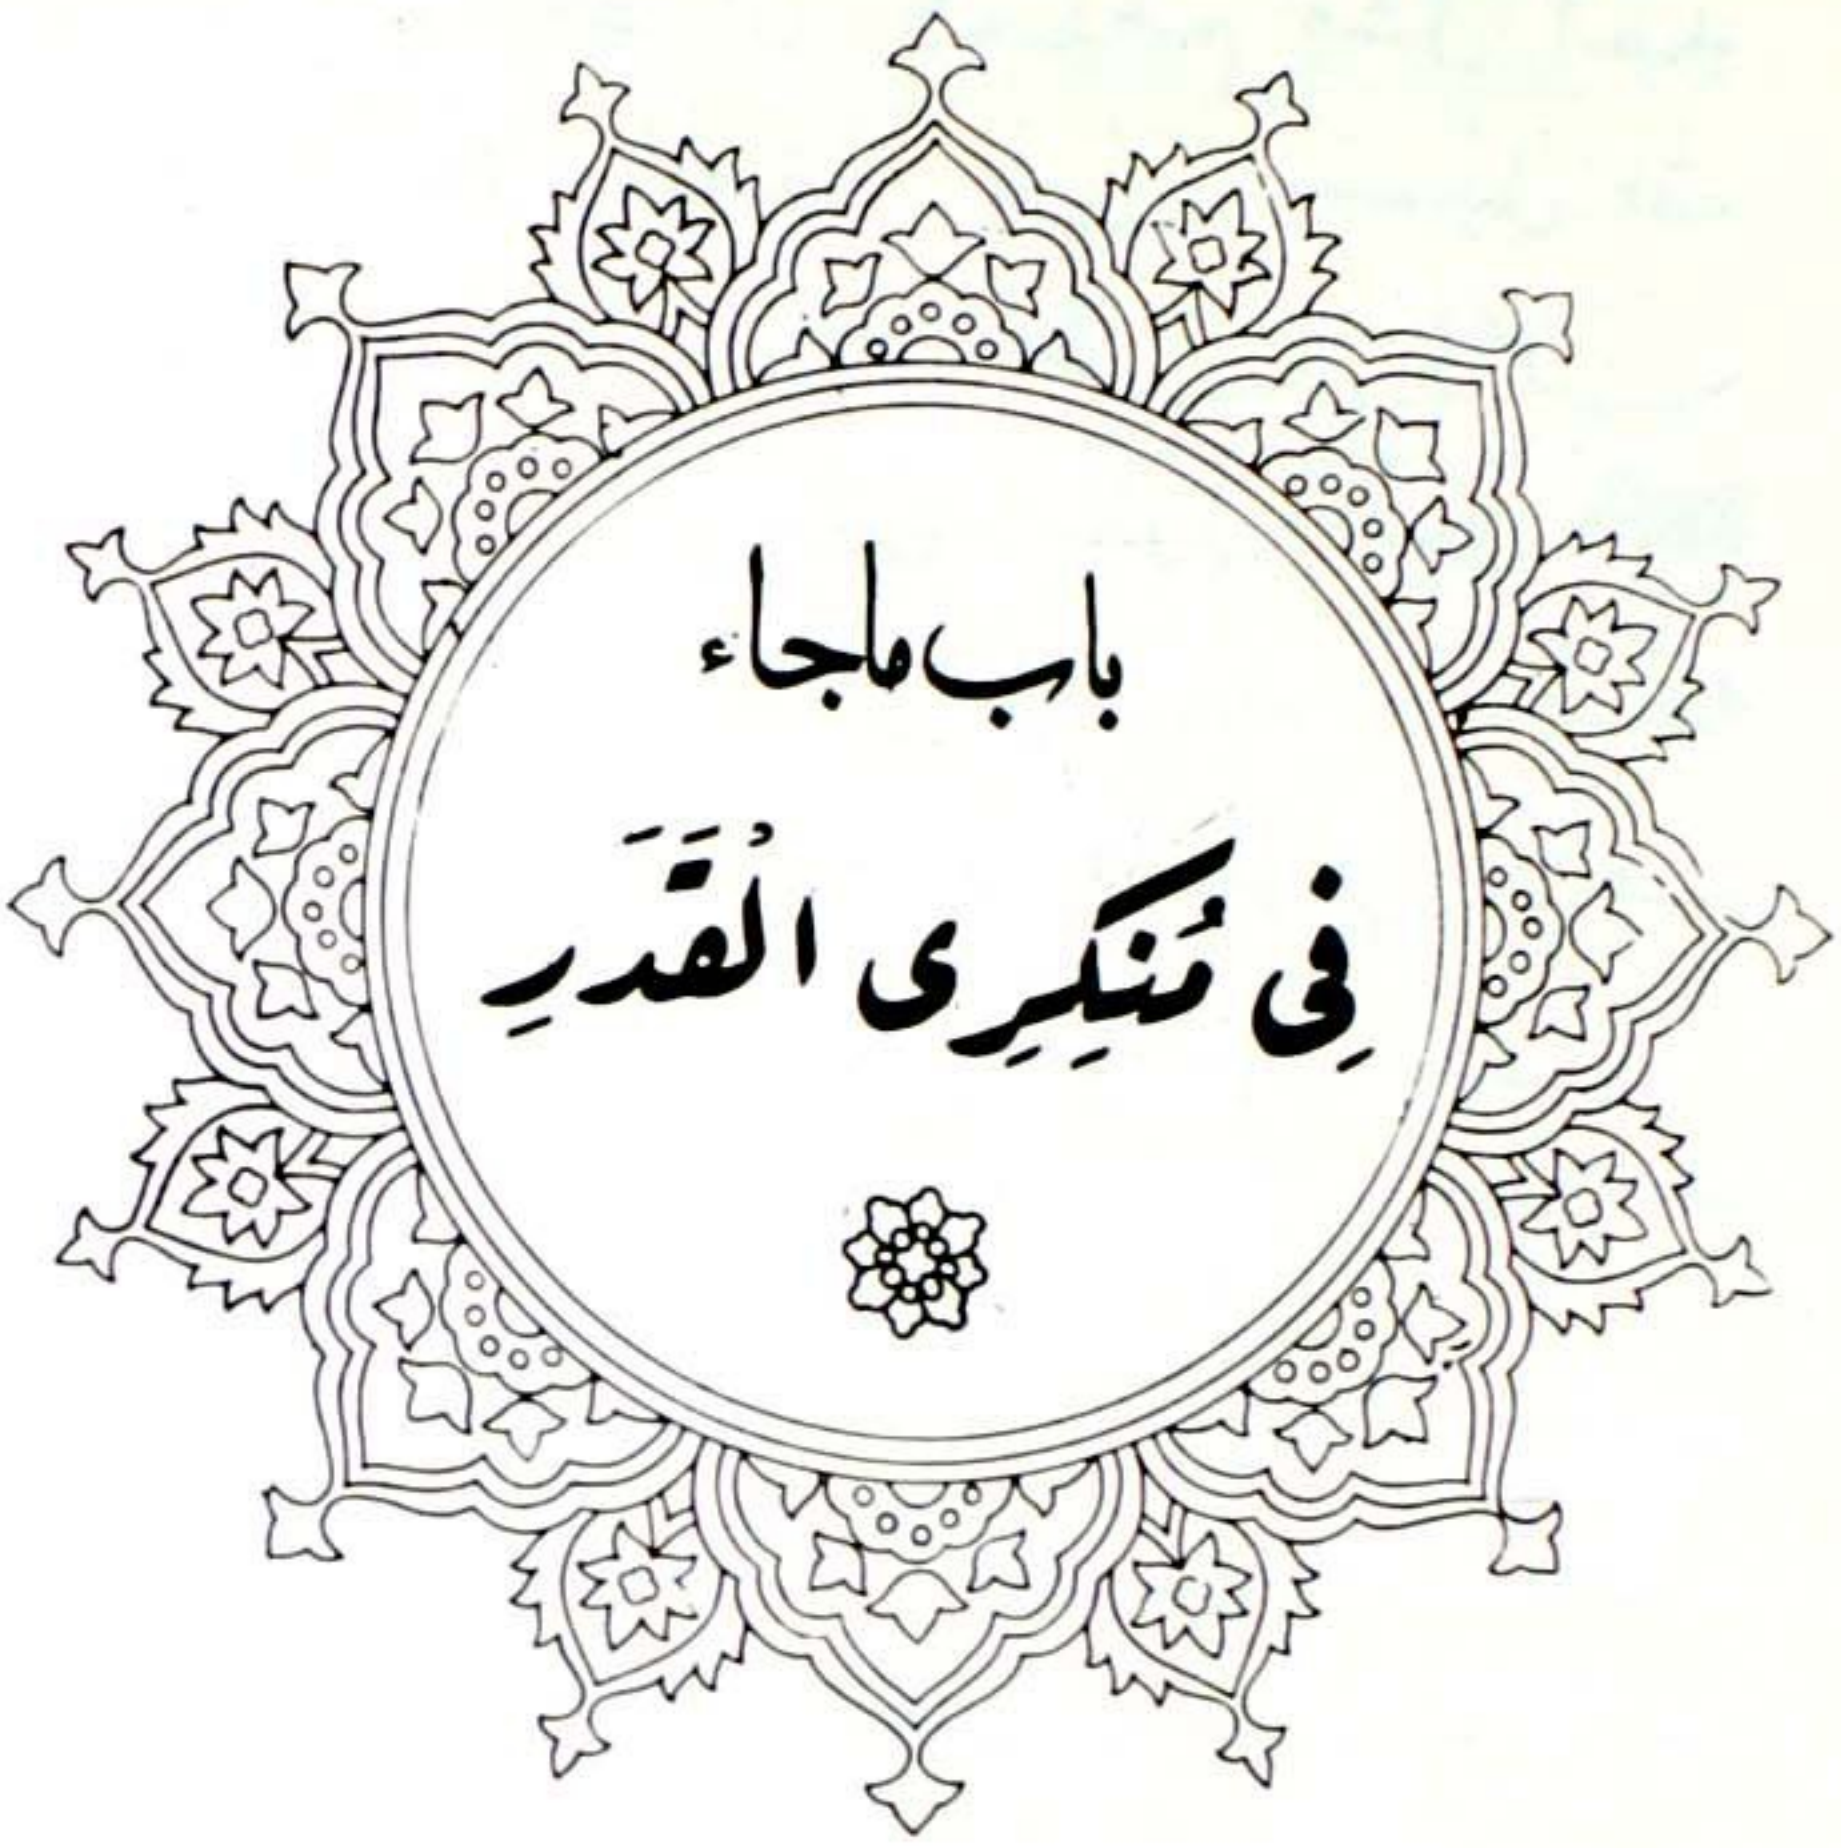 باب ماجاء
فِى مُنكِرِى الْقَدَرِ